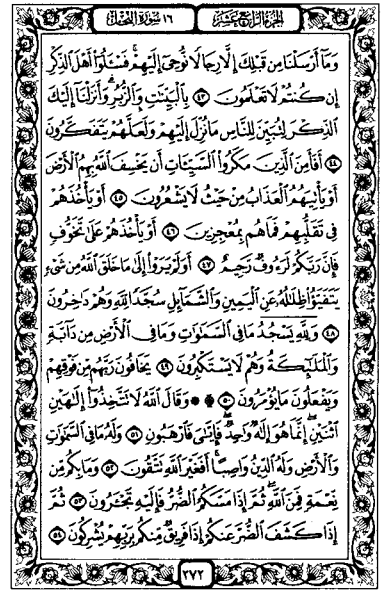 الجزء الرابع عشر ١٦ سورة النحل
وَمَا أَرْسَلْنَا مِن قَبْلِكَ إِلَّا رِجَالًا نُّوحِي إِلَيْهِمْ فَسْـَٔلُوٓا۟ أَهْلَ ٱلذِّكْرِ
إِن كُنتُمْ لَا تَعْلَمُونَ ٤٣ بِٱلْبَيِّنَٰتِ وَٱلزُّبُرِ وَأَنزَلْنَآ إِلَيْكَ
ٱلذِّكْرَ لِتُبَيِّنَ لِلنَّاسِ مَا نُزِّلَ إِلَيْهِمْ وَلَعَلَّهُمْ يَتَفَكَّرُونَ
٤٤ أَفَأَمِنَ ٱلَّذِينَ مَكَرُوا۟ ٱلسَّيِّـَٔاتِ أَن يَخْسِفَ ٱللَّهُ بِهِمُ ٱلْأَرْضَ
أَوْ يَأْتِيَهُمُ ٱلْعَذَابُ مِنْ حَيْثُ لَا يَشْعُرُونَ ٤٥ أَوْ يَأْخُذَهُمْ
فِى تَقَلُّبِهِمْ فَمَا هُم بِمُعْجِزِينَ ٤٦ أَوْ يَأْخُذَهُمْ عَلَىٰ تَخَوُّفٍ
فَإِنَّ رَبَّكُمْ لَرَءُوفٌ رَّحِيمٌ ٤٧ أَوَلَمْ يَرَوْا۟ إِلَىٰ مَا خَلَقَ ٱللَّهُ مِن شَىْءٍ
يَتَفَيَّؤُا۟ ظِلَٰلُهُۥ عَنِ ٱلْيَمِينِ وَٱلشَّمَآئِلِ سُجَّدًا لِّلَّهِ وَهُمْ دَٰخِرُونَ
٤٨ وَلِلَّهِ يَسْجُدُ مَا فِى ٱلسَّمَٰوَٰتِ وَمَا فِى ٱلْأَرْضِ مِن دَآبَّةٍ
وَٱلْمَلَٰٓئِكَةُ وَهُمْ لَا يَسْتَكْبِرُونَ ٤٩ يَخَافُونَ رَبَّهُم مِّن فَوْقِهِمْ
وَيَفْعَلُونَ مَا يُؤْمَرُونَ ٥٠ ۞ وَقَالَ ٱللَّهُ لَا تَتَّخِذُوٓا۟ إِلَٰهَيْنِ
ٱثْنَيْنِ إِنَّمَا هُوَ إِلَٰهٌ وَٰحِدٌ فَإِيَّٰىَ فَٱرْهَبُونِ ٥١ وَلَهُۥ مَا فِى ٱلسَّمَٰوَٰتِ
وَٱلْأَرْضِ وَلَهُ ٱلدِّينُ وَاصِبًا أَفَغَيْرَ ٱللَّهِ تَتَّقُونَ ٥٢ وَمَا بِكُم مِّن
نِّعْمَةٍ فَمِنَ ٱللَّهِ ثُمَّ إِذَا مَسَّكُمُ ٱلضُّرُّ فَإِلَيْهِ تَجْـَٔرُونَ ٥٣ ثُمَّ
إِذَا كَشَفَ ٱلضُّرَّ عَنكُمْ إِذَا فَرِيقٌ مِّنكُم بِرَبِّهِمْ يُشْرِكُونَ ٥٤
٢٧٢